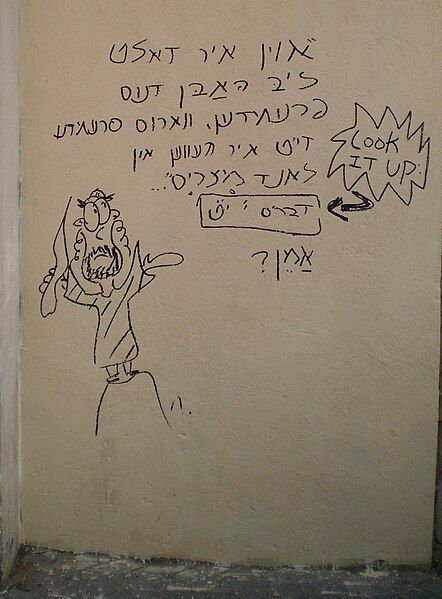 "און איר זאלט
ליב האַבן דעם
פרעמדען, ווארום פרעמדע
זייט איר געווען אין
לאנד מִצְרַיִם"...
דברים י"יט
אַמֵן?
LOOK
IT UP!